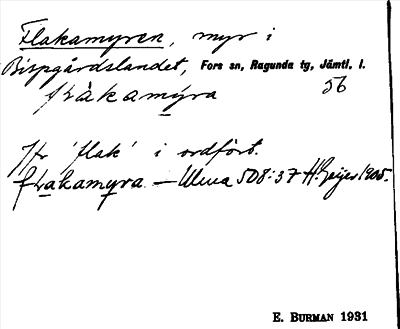 Flakamyren, myr i
Bispgårdslandet, Fors sn, Ragunda tg, Jämtl. l.
flàkamyra 56
Jfr 'flak' i ordfört.
flakamyra. — Ulma 508:37 H. Geijer 1905.
E. BURMAN 1931